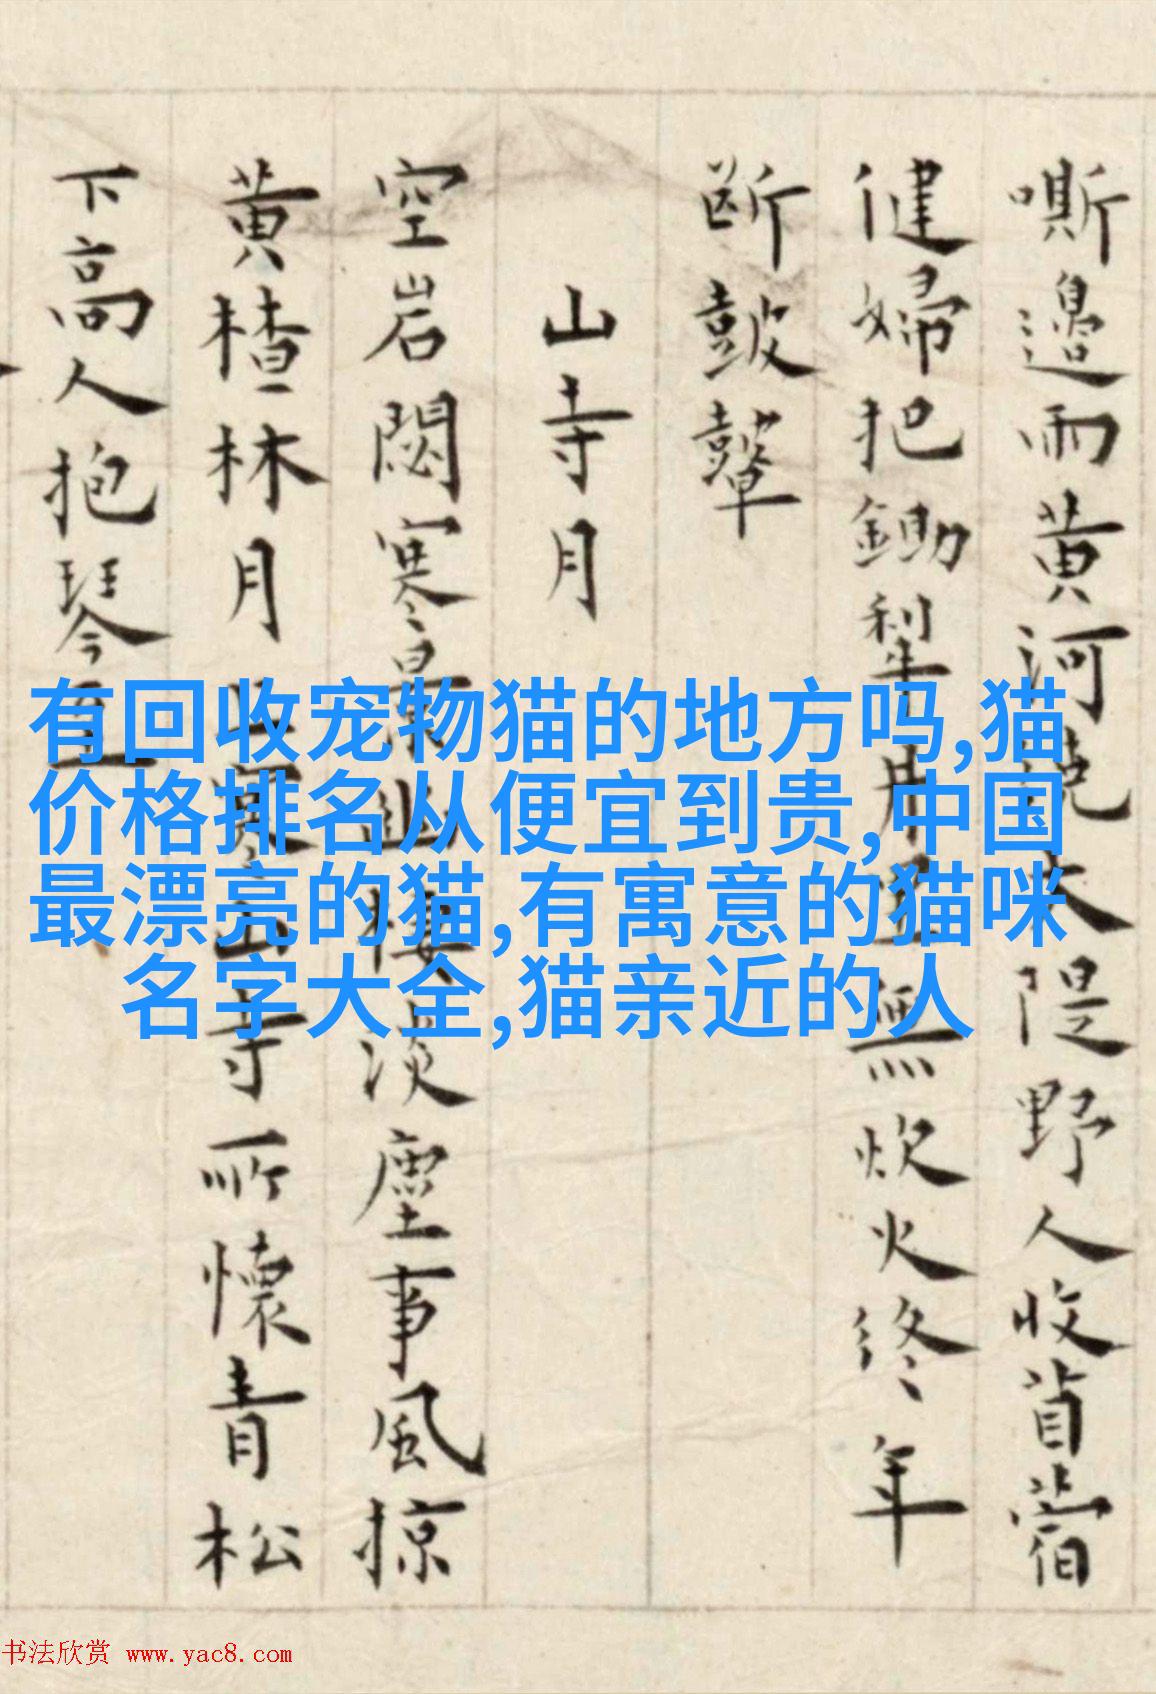 嘶邊雨黄河繞大隄野人收苜蓿
健婦把鋤犁月無炊火終年
断鼓鼙
山寺月
空岩閟寒淡塵事風掠
黄楂林月寺所懷青松
下高人抱琴
有回收宠物猫的地方吗,猫
价格排名从便宜到贵,中国
最漂亮的猫,有寓意的猫咪
名字大全,猫亲近的人
书法欣赏 www.yac8.com